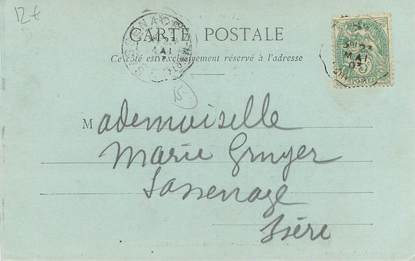 12€
CARTE POSTALE
Ce côté est exclusivement réservé à l'adresse
5
Mademoiselle
Marie Gruyer
Sassenage
Isère
MAI